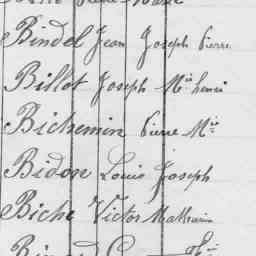 Bindel Jean Joseph Pierre
Billot Joseph M^ie henri
Bichemin Pierre M^ie
Bidon Louis Joseph
Biche Victor Mathurin